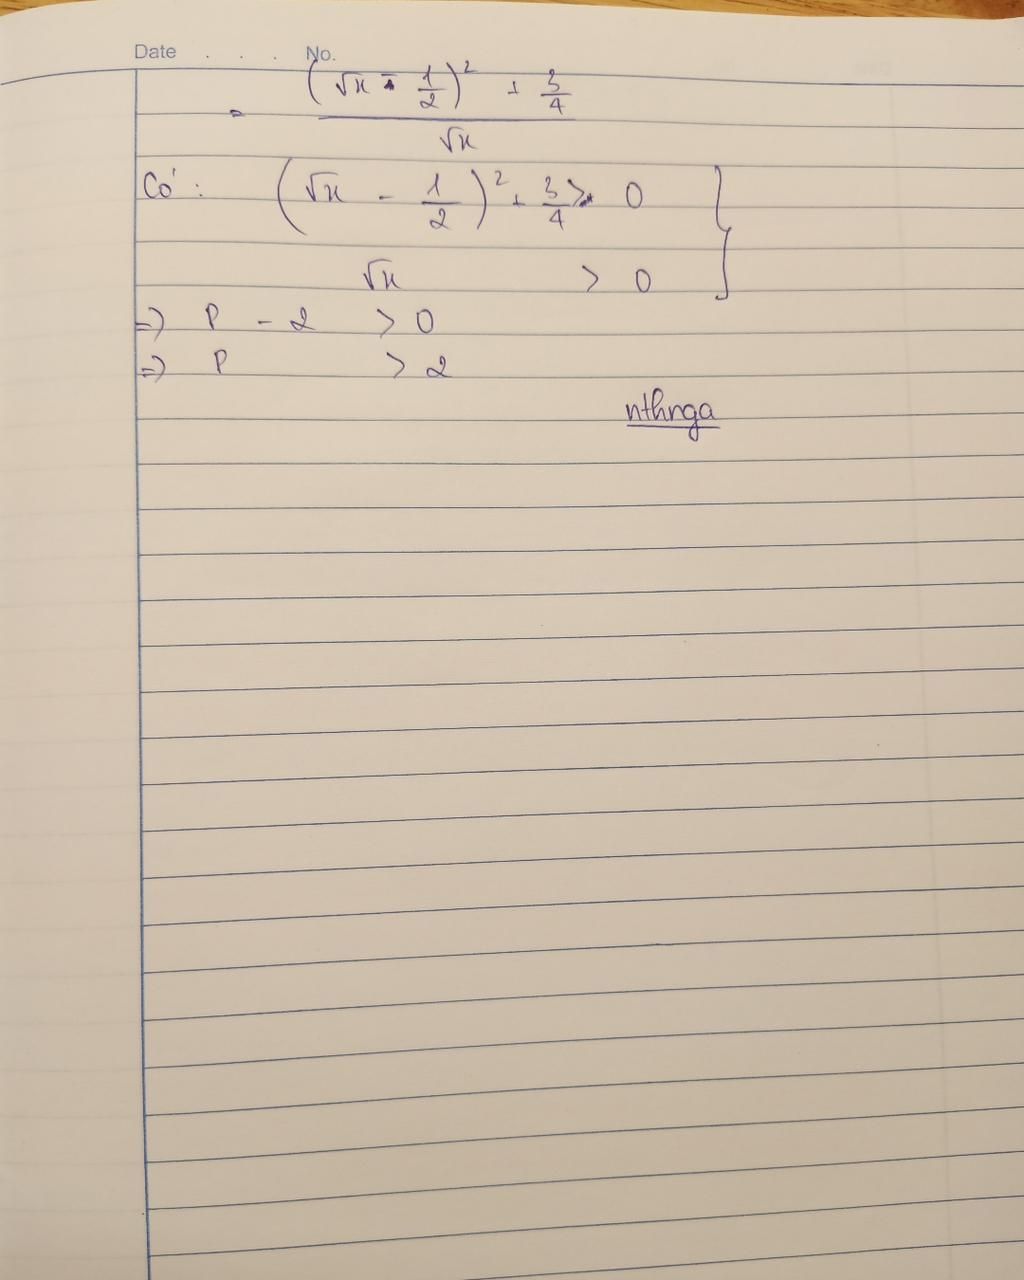 Date . . . No.
= \frac{(\sqrt{x} - \frac{1}{2})^2 + \frac{3}{4}}{\sqrt{x}}
Có: (\sqrt{x} - \frac{1}{2})^2 + \frac{3}{4} > 0 }
\sqrt{x} > 0
=> P - 2 > 0
=> P > 2
nthnga